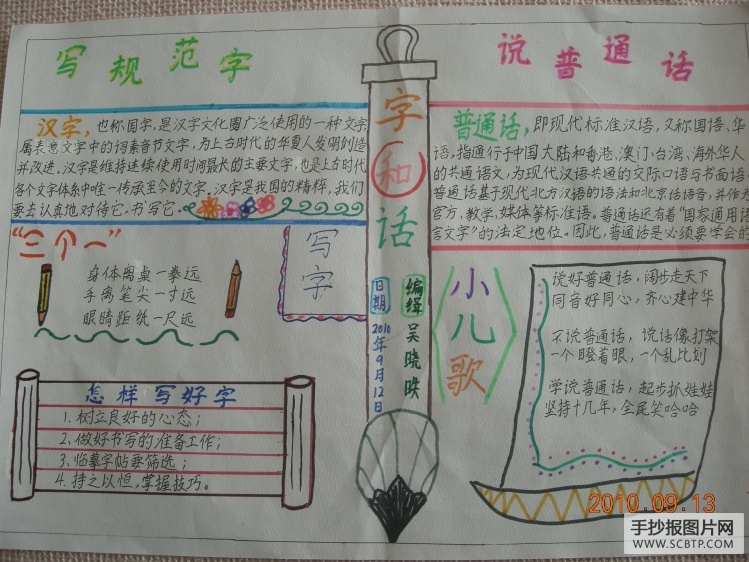 写规范字
汉字，也称国字，是汉字文化圈广泛使用的一种文字，
属表意文字中的词素音节文字，为上古时代的华夏人发明创造
并改进。汉字是维持连续使用时间最长的主要文字，也是上古时代
各个文字体系中唯一传承至今的文字。汉字是我国的精粹，我们
要去认真地对待它，书写它。
“三个一”
身体离桌一拳远
手离笔尖一寸远
眼睛距纸一尺远
写字
怎样写好字
1、树立良好的心态；
2、做好书写的准备工作；
3、临摹字帖要筛选；
4、持之以恒，掌握技巧。
字和话
编缉 吴晓映
日期 2010年9月12日
说普通话
普通话，即现代标准汉语，又称国语、华
语，指通行于中国大陆和香港、澳门、台湾、海外华人
的共通语文，为现代汉语共通的交际口语与书面语。
普通话基于现代北方汉语的语法和北京话语音，并作为
官方、教学、媒体等标准语。普通话还有着“国家通用语
言文字”的法定地位。因此，普通话是必须要学会的
小儿歌
说好普通话，阔步走天下
同音好同心，齐心建中华
不说普通话，说话像打架
一个瞪着眼，一个乱比划
学说普通话，起步抓娃娃
坚持十几年，全民笑哈哈
2010.09.13
手抄报图片网
WWW.SCBTP.COM